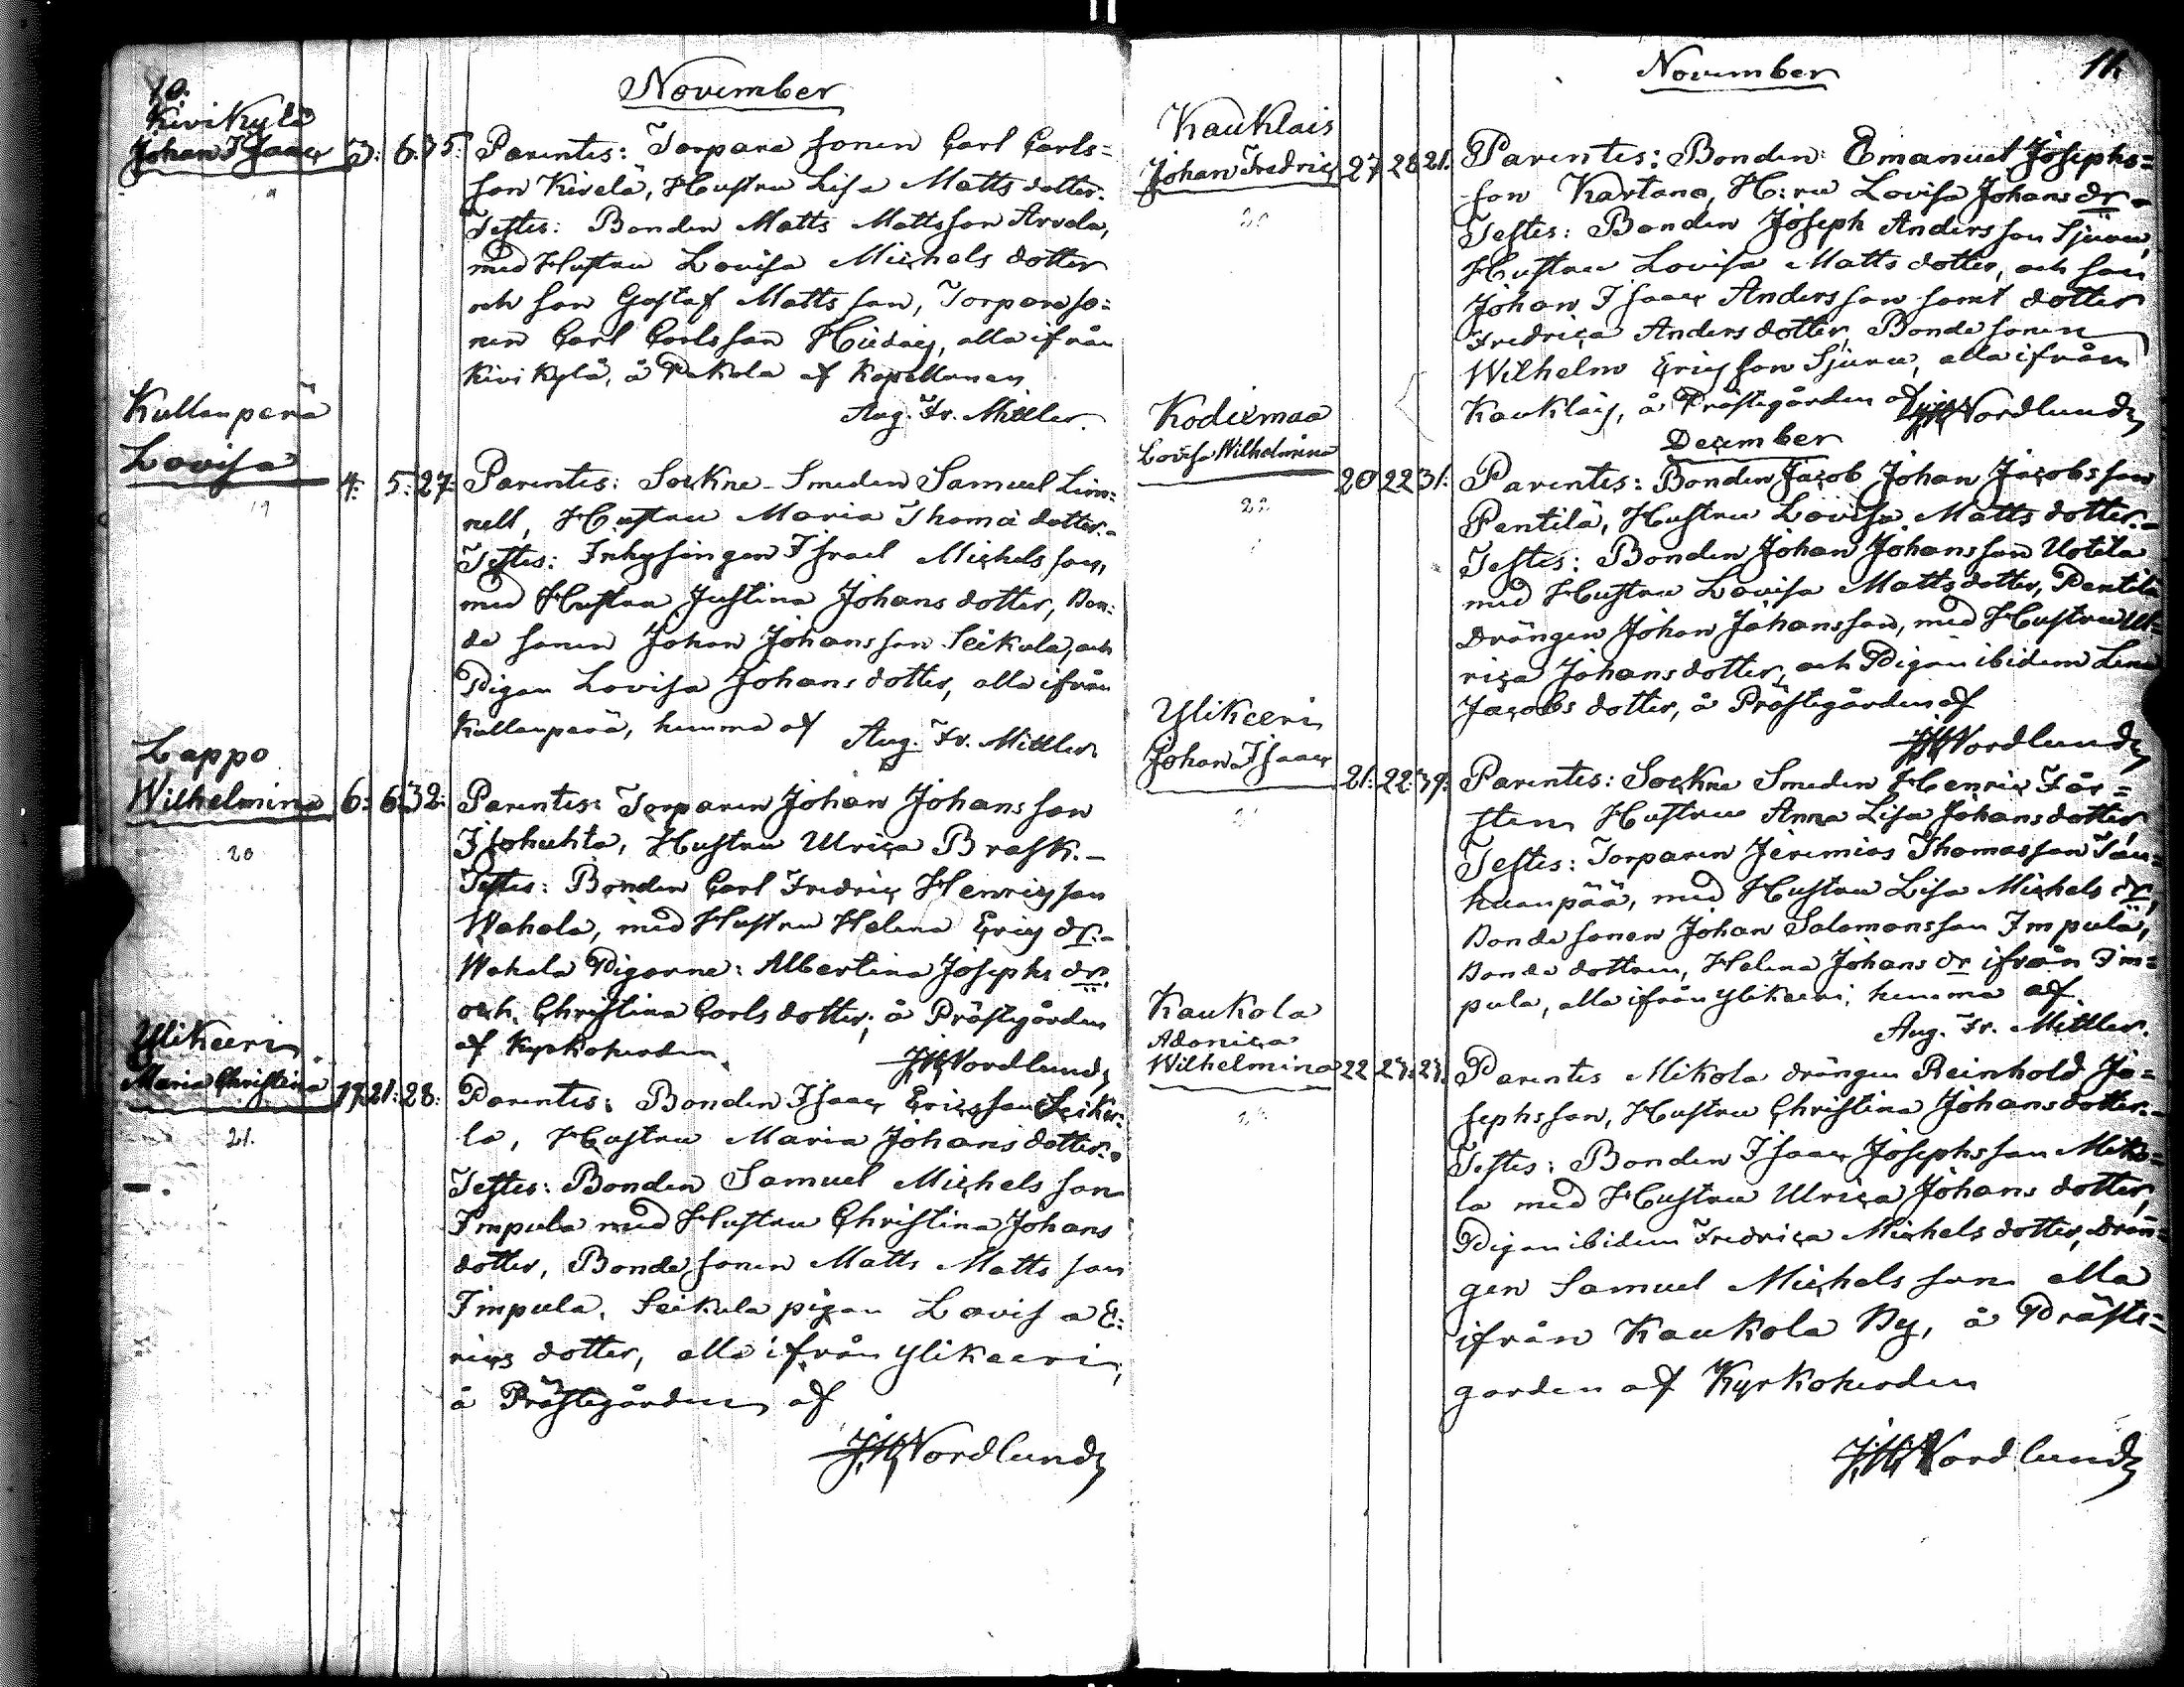 10.
November
Kivikylä
Johan Isaac 5: 6: 35:
Parentes: Torpare sonen Carl Carls=
son Kivelä, Hustru Lisa Matts dotter.
Testes: Bonden Matts Mattsson Arvela,
med Hustru Lovisa Michels dotter
och son Gustaf Matts son, Torpareso=
nen Carl Carlsson, alla ifrån
Kivikylä, å Pakola af Kapellanen
Aug. Fr. Mittler.
Kullanperä
Lovisa 4: 5: 27:
19
Parentes: Sockne-Smeden Samuel Linn=
nell, Hustru Maria Thomæ dotter.-
Testes: Inhysingen Israel Michels son,
med Hustru Justina Johans dotter, Bon:
de sonen Johan Johansson Seikola, och
Pigan Lovisa Johans dotter, alla ifrån
Kullanperä, hemma af
Aug. Fr. Mittler.
Lappo
Wilhelmina 6: 6: 32:
20
Parentes: Torparen Johan Johansson
Isohuhta, Hustru Ulrica Brask.-
Testes: Bonden Carl Fredric Henricsson
Wahala, med Hustru Helena Erics dr.-
Wahala Pigorne: Albertina Josephs dr,
och Christina Carls dotter, å Prästgården
af Kyrkoherden
JH Nordlund
Ylikeeri
Maria Christina 19. 21: 28:
21.
Parentes: Bonden Isaac Ericsson Seiku=
la, Hustru Maria Johans dotter.
Testes: Bonden Samuel Michels son
Impula med Hustru Christina Johans
dotter, Bonde sonen Matts Matts son
Impula, Seikula pigan Lovisa E:
rics dotter, alla ifrån Ylikeeri,
å Prästegården af
JH Nordlund
11.
November
Kauklais
Johan Fredric 27 28 21.
Parentes: Bonden Emanuel Josephs=
son Kartano, H:ru Lovisa Johans dr-
Testes: Bonden Joseph Andersson Sjuru,
Hustru Lovisa Matts dotter, och son
Johan Isaac Andersson samt dotter
Fredrica Anders dotter, Bonde sonen
Wilhelm Ericsson Sjuru, alla ifrån
Kauklais, å Prästegården af JH Nordlund
December
Kodiemaa
Lovisa Wilhelmina 20 22 31.
22
Parentes: Bonden Jacob Johan Jacobsson
Pentilä, Hustru Lovisa Matts dotter.-
Testes: Bonden Johan Johansson Uotila
med Hustru Lovisa Matts dotter, Pentilä
Drängen Johan Johansson, med Hustru Ul=
rica Johans dotter, och Pigan ibidem Lena
Jacobs dotter, å Prästegården af
JH Nordlund
Ylikeeri
Johan Isaac 21. 22. 39.
Parentes: Sockne Smeden Henric För=
sten, Hustru Anna Lisa Johans dotter
Testes: Torparen Jeremias Thomasson Tau=
huanpää, med Hustru Lisa Michels dr,
Bonde sonen Johan Salomonsson Impula,
Bonde dottren, Helena Johans dr ifrån Im=
pula, alla ifrån Ylikeeri, hemma af
Aug. Fr. Mittler.
Kaukola
Adonica
Wilhelmina 22 23. 23.
Parentes Mikola drängen Reinhold Jo=
sephsson, Hustru Christina Johans dotter.-
Testes: Bonden Isaac Josephsson Miko=
la med Hustru Ulrica Johans dotter,
Pigan ibidem Fredrica Michels dotter, Drän=
gen Samuel Michels son alla
ifrån Kaukola By, å Präste=
garden af Kyrkoherden
JH Nordlund